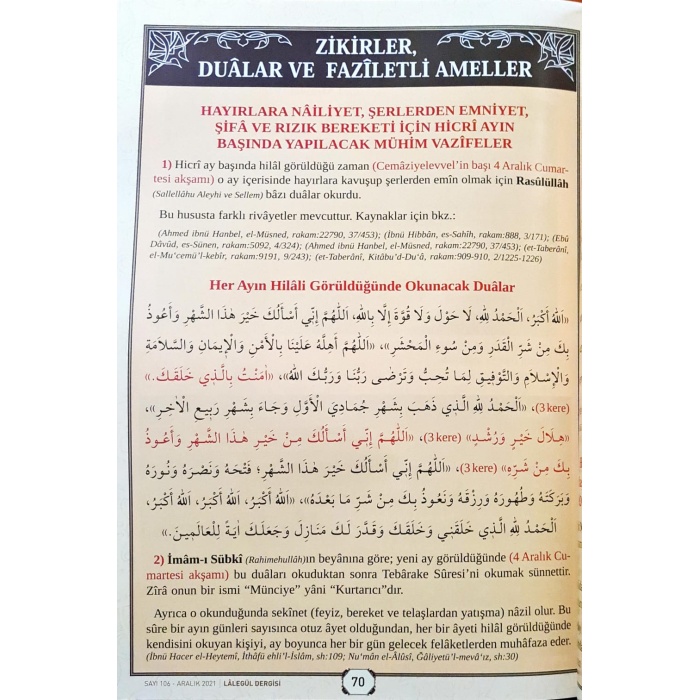 ZİKİRLER,
DUÂLAR VE FAZÎLETLİ AMELLER
HAYIRLARA NÂİLİYET, ŞERLERDEN EMNİYET,
ŞİFÂ VE RIZIK BEREKETİ İÇİN HİCRÎ AYIN
BAŞINDA YAPILACAK MÜHİM VAZÎFELER
1) Hicrî ay başında hilâl görüldüğü zaman (Cemâziyelevvel'in başı 4 Aralık Cumar-
tesi akşamı) o ay içerisinde hayırlara kavuşup şerlerden emîn olmak için Rasûlüllâh
(Sallellâhu Aleyhi ve Sellem) bâzı duâlar okurdu.
Bu hususta farklı rivâyetler mevcuttur. Kaynaklar için bkz.:
(Ahmed ibnü Hanbel, el-Müsned, rakam:22790, 37/453); (İbnü Hibbân, es-Sahîh, rakam:888, 3/171); (Ebû
Dâvûd, es-Sünen, rakam:5092, 4/324); (Ahmed ibnü Hanbel, el-Müsned, rakam:22790, 37/453); (et-Taberânî,
el-Mu'cemü'l-kebîr, rakam:9191, 9/243); (et-Taberânî, Kitâbu'd-Du'â, rakam:909-910, 2/1225-1226)
Her Ayın Hilâli Görüldüğünde Okunacak Duâlar
«اَللهُ أَكْبَرُ، اَلْحَمْدُ لِلّٰهِ، لَا حَوْلَ وَلَا قُوَّةَ إِلَّا بِاللهِ، اَللّٰهُمَّ إِنِّي أَسْأَلُكَ خَيْرَ هٰذَا الشَّهْرِ وَأَعُوذُ
بِكَ مِنْ شَرِّ الْقَدَرِ وَمِنْ سُوءِ الْمَحْشَرِ»، «اَللّٰهُمَّ أَهِلَّهُ عَلَيْنَا بِالْأَمْنِ وَالْإِيمَانِ وَالسَّلَامَةِ
وَالْإِسْلَامِ وَالتَّوْفِيقِ لِمَا تُحِبُّ وَتَرْضٰى رَبُّنَا وَرَبُّكَ اللهُ»، «اٰمَنْتُ بِالَّذِي خَلَقَكَ.»
(3 kere)، «اَلْحَمْدُ لِلّٰهِ الَّذِي ذَهَبَ بِشَهْرِ جُمَادِي الْأَوَّلِ وَجَاءَ بِشَهْرِ رَبِيعِ الْاٰخِرِ»،
«هِلَالَ خَيْرٍ وَرُشْدٍ» (3 kere)، «اَللّٰهُمَّ إِنِّي أَسْأَلُكَ مِنْ خَيْرِ هٰذَا الشَّهْرِ وَأَعُوذُ
بِكَ مِنْ شَرِّهِ» (3 kere)، «اَللّٰهُمَّ إِنِّي أَسْأَلُكَ خَيْرَ هٰذَا الشَّهْرِ؛ فَتْحَهُ وَنَصْرَهُ وَنُورَهُ
وَبَرَكَتَهُ وَطَهُورَهُ وَرِزْقَهُ وَنَعُوذُ بِكَ مِنْ شَرِّ مَا بَعْدَهُ»، «اَللهُ أَكْبَرُ، اَللهُ أَكْبَرُ، اَللهُ أَكْبَرُ،
اَلْحَمْدُ لِلّٰهِ الَّذِي خَلَقَنِي وَخَلَقَكَ وَقَدَّرَ لَكَ مَنَازِلَ وَجَعَلَكَ اٰيَةً لِلْعَالَمِينَ.»
2) İmâm-ı Sübkî (Rahimehullâh)ın beyânına göre; yeni ay görüldüğünde (4 Aralık Cu-
martesi akşamı) bu duâları okuduktan sonra Tebârake Sûresi'ni okumak sünnettir.
Zîrâ onun bir ismi "Münciye" yâni "Kurtarıcı"dır.
Ayrıca o okunduğunda sekînet (feyiz, bereket ve telaşlardan yatışma) nâzil olur. Bu
sûre bir ayın günleri sayısınca otuz âyet olduğundan, her bir âyeti hilâl görüldüğünde
kendisini okuyan kişiyi, ay boyunca her bir gün gelecek felâketlerden muhâfaza eder.
(İbnü Hacer el-Heytemî, İthâfü ehli'l-İslâm, sh:109; Nu'mân el-Âlûsî, Ğâliyetü'l-mevâ'ız, sh:30)
SAYI 106 - ARALIK 2021 | LÂLEGÜL DERGİSİ
70